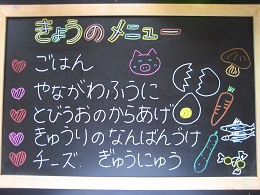 きょうのメニュー
ごはん
やながわふうに
とびうおのからあげ
きゅうりのなんばんづけ
チーズ. ぎゅうにゅう